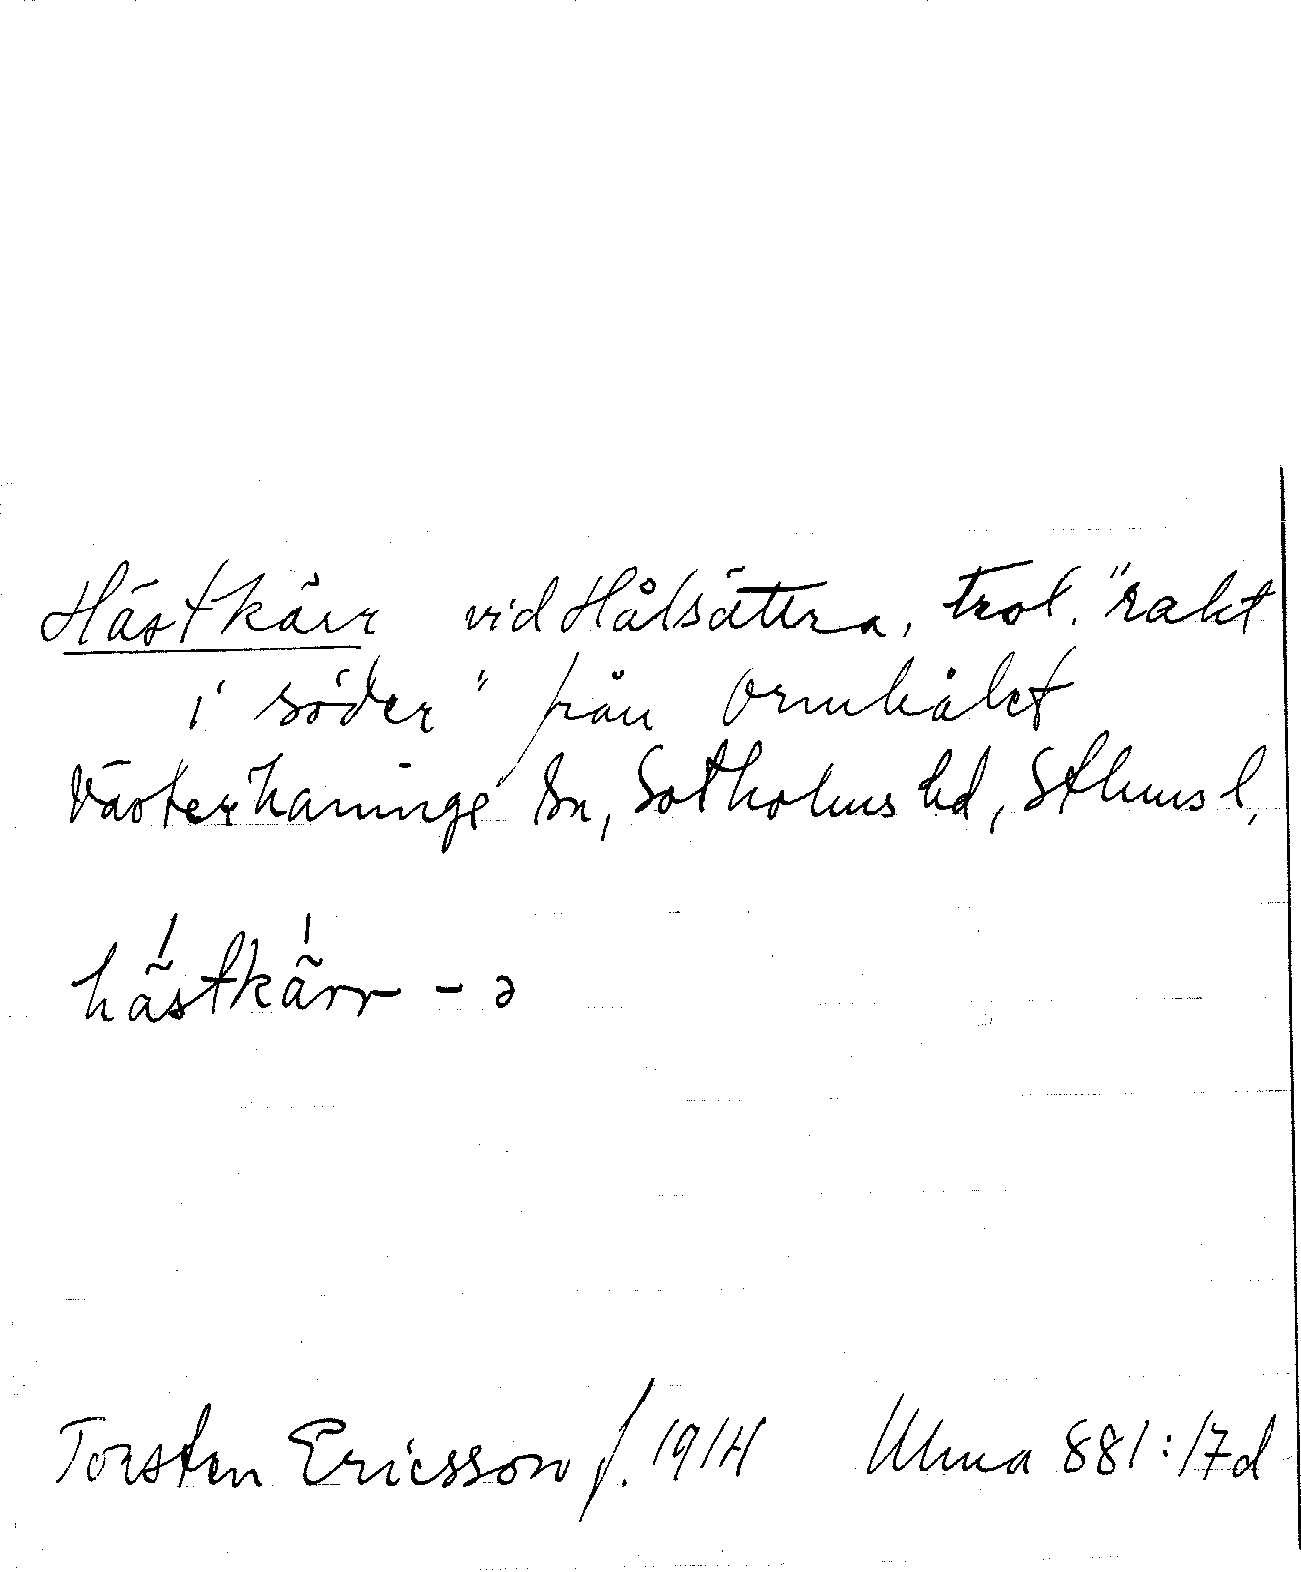 Hästkärr vid Hålsättra, trol. "rakt
i söder" från Ormhålet
Västerhaninge sn, Sotholms hd, Sthms l,
hästkärr - ə
Torsten Ericsson f. 1914 Ulma 881:17d